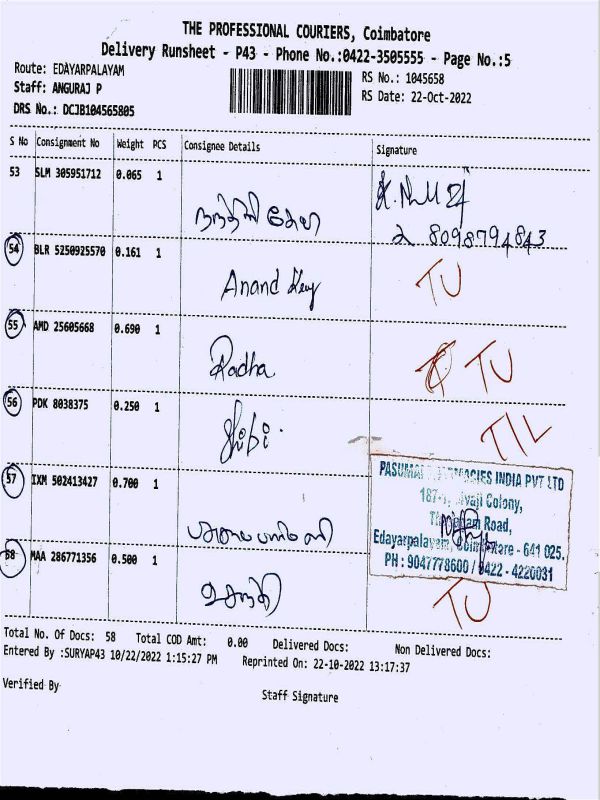 THE PROFESSIONAL COURIERS, Coimbatore
Delivery Runsheet - P43 - Phone No.:0422-3505555 - Page No.:5
Route: EDAYARPALAYAM
RS No.: 1045658
Staff: ANGURAJ P
RS Date: 22-Oct-2022
DRS No.: DCJB104565805
S No Consignment No Weight PCS Consignee Details Signature
53 SLM 305951712 0.065 1
8098794843
54 BLR 5250925570 0.161 1
Anand TU
55 AMD 25605668 0.690 1
Radha TU
56 PDK 8038375 0.250 1
Shibi T/L
57 IXM 502413427 0.700 1
PASUMAI INDIA PVT LTD
Colony,
Road,
Edayarpalayam, Coimbatore - 641 025.
PH : 9047778600 / 0422 - 4220031
58 MAA 286771356 0.500 1
TU
Total No. Of Docs: 58 Total COD Amt: 0.00 Delivered Docs: Non Delivered Docs:
Entered By :SURYAP43 10/22/2022 1:15:27 PM Reprinted On: 22-10-2022 13:17:37
Verified By
Staff Signature